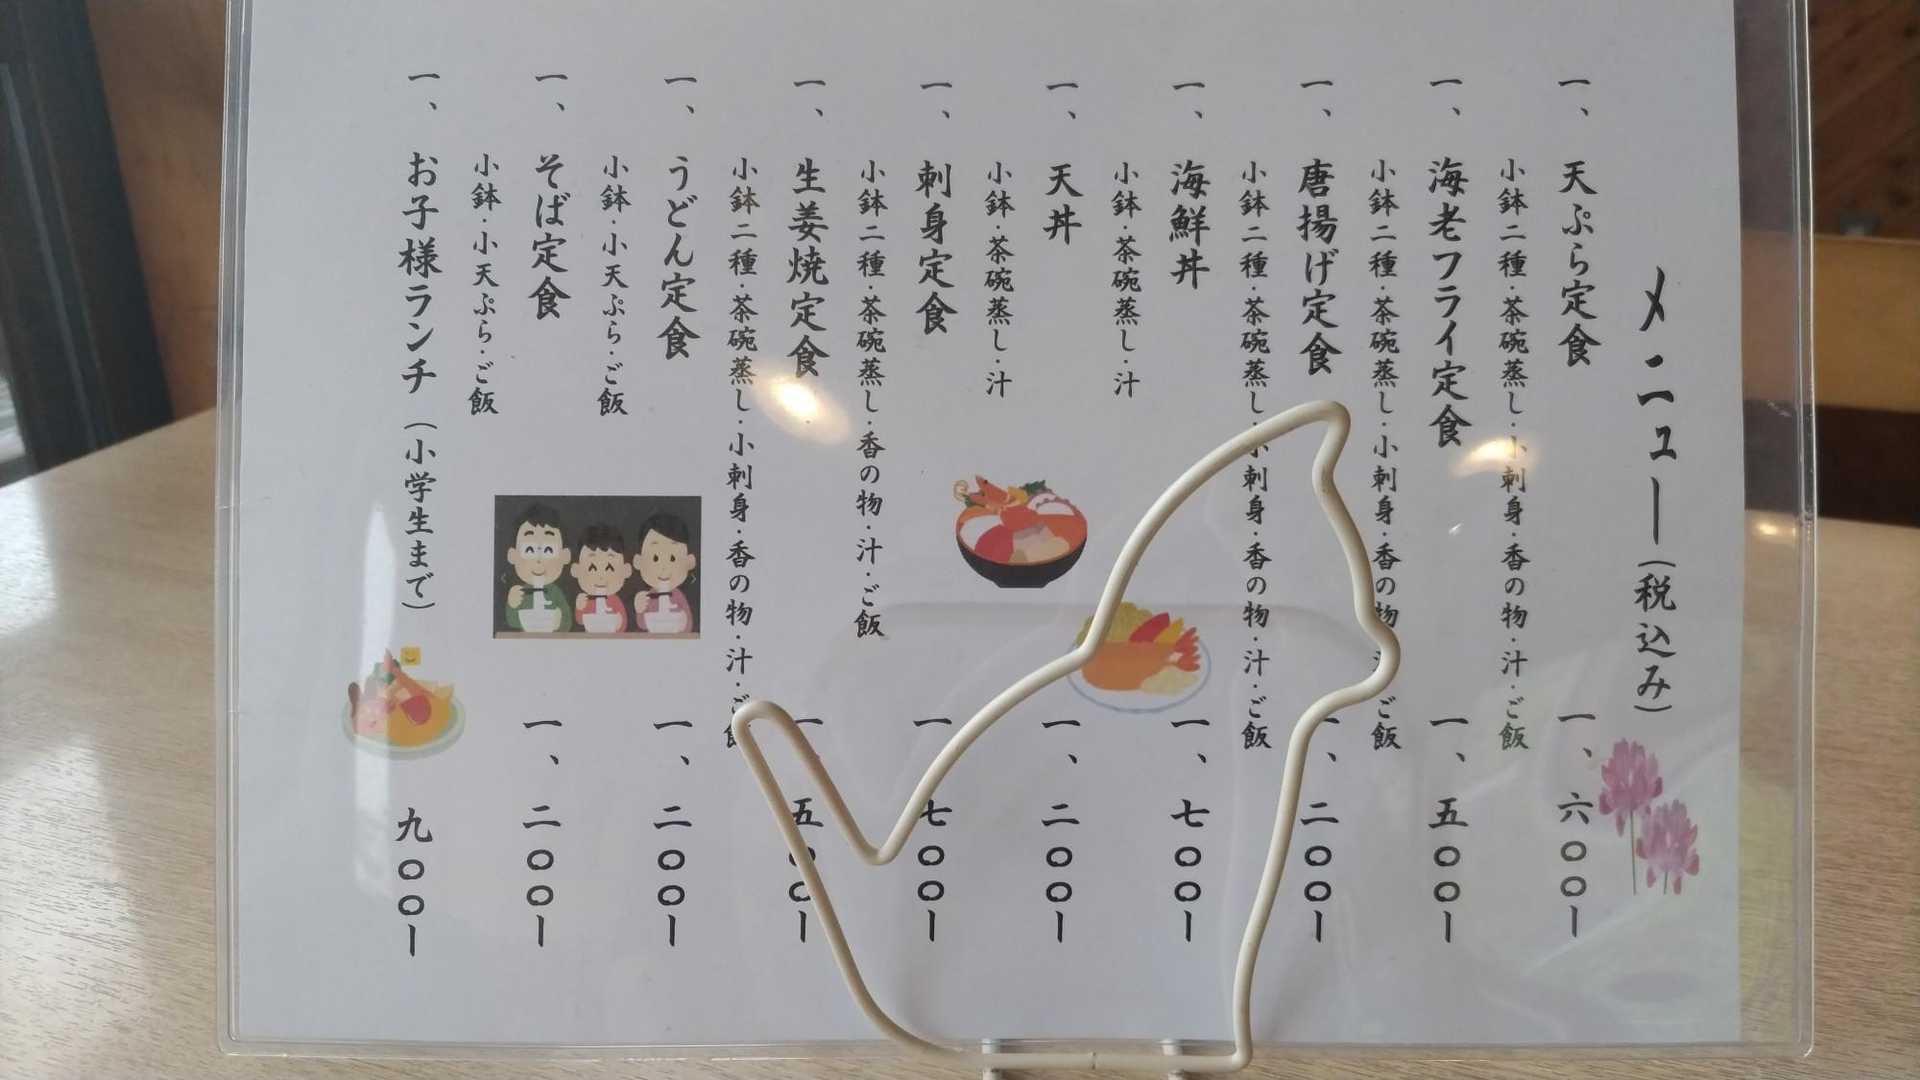 メニュー（税込み）
一、天ぷら定食 一、六〇〇ー
小鉢二種・茶碗蒸し・小刺身・香の物・汁・ご飯
一、海老フライ定食 一、五〇〇ー
小鉢二種・茶碗蒸し・小刺身・香の物・汁・ご飯
一、唐揚げ定食 一、二〇〇ー
小鉢二種・茶碗蒸し・小刺身・香の物・汁・ご飯
一、海鮮丼 一、七〇〇ー
小鉢・茶碗蒸し・汁
一、天丼 一、二〇〇ー
小鉢・茶碗蒸し・汁
一、刺身定食 一、七〇〇ー
小鉢二種・茶碗蒸し・香の物・汁・ご飯
一、生姜焼定食 一、五〇〇ー
小鉢二種・茶碗蒸し・小刺身・香の物・汁・ご飯
一、うどん定食 一、二〇〇ー
小鉢・小天ぷら・ご飯
一、そば定食 一、二〇〇ー
小鉢・小天ぷら・ご飯
一、お子様ランチ（小学生まで） 九〇〇ー